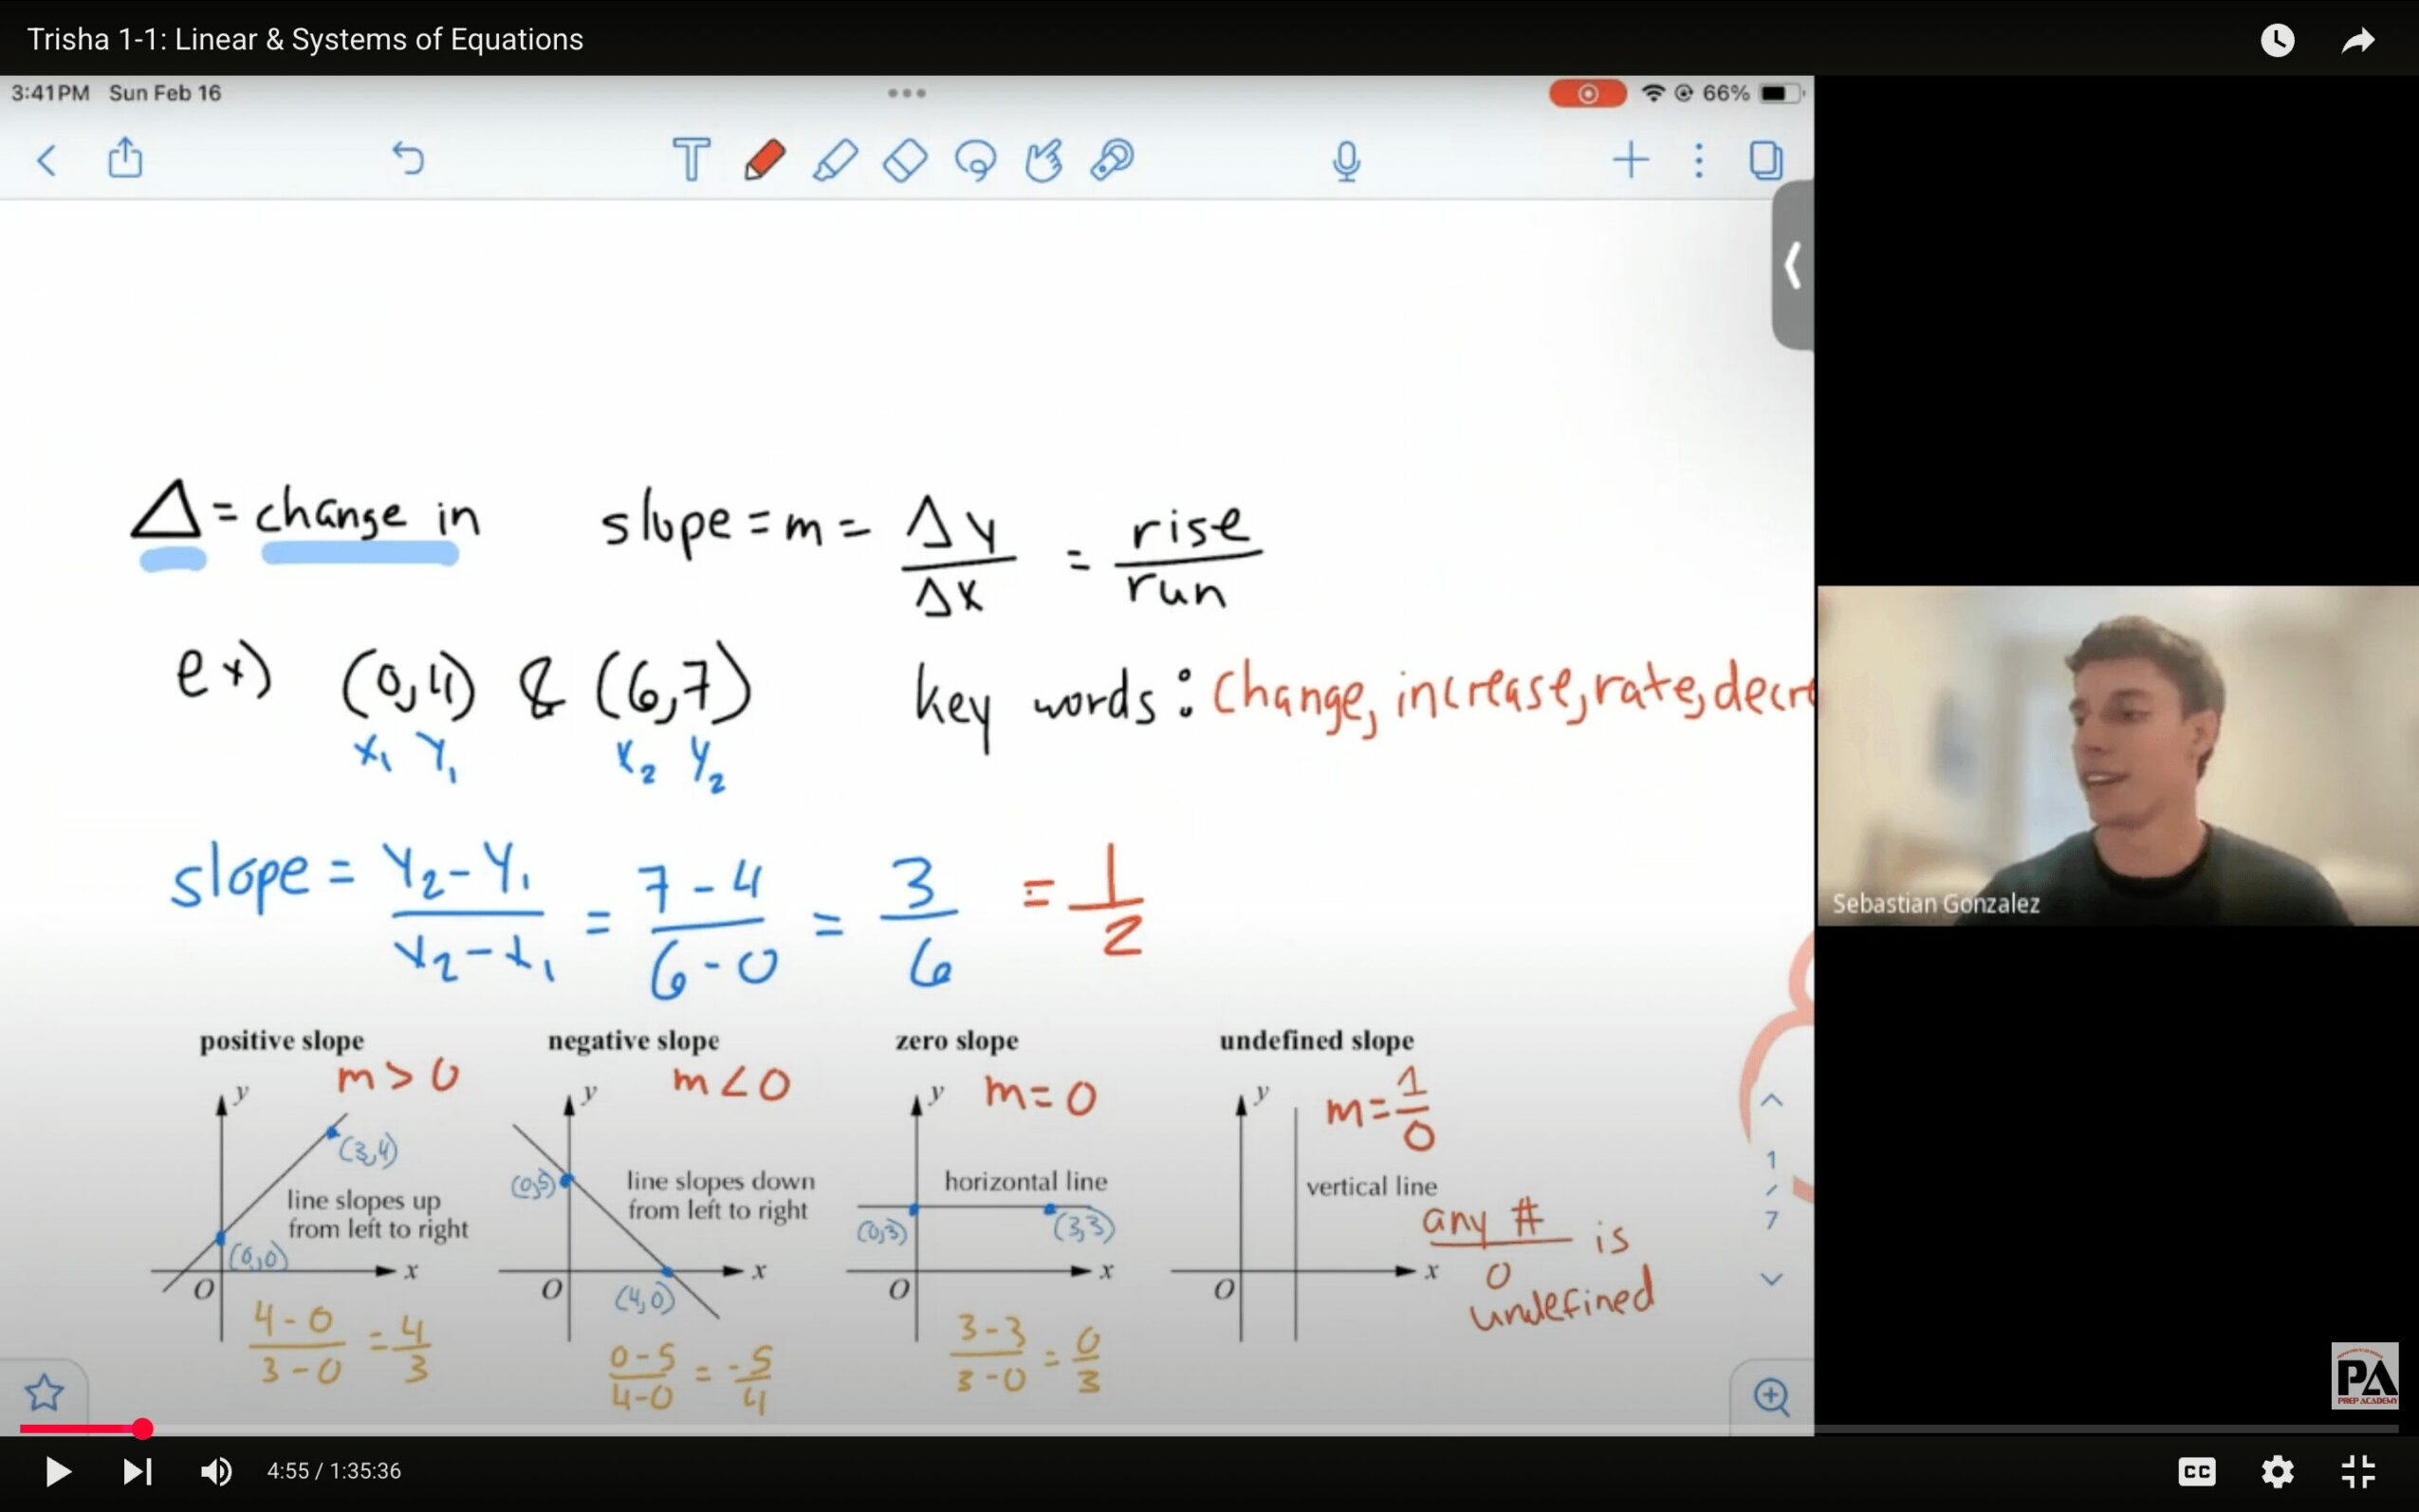 Trisha 1-1: Linear & Systems of Equations
3:41PM Sun Feb 16
66%
T
Δ = change in
slope = m = Δy/Δx = rise/run
ex) (0,4) & (6,7)
x₁ y₁ x₂ y₂
key words: change, increase, rate, decre
slope = y₂-y₁/x₂-x₁ = 7-4/6-0 = 3/6 = 1/2
Sebastian Gonzalez
positive slope
m > 0
y
(3,4)
line slopes up
from left to right
(0,0)
x
O
4-0/3-0 = 4/3
negative slope
m < 0
y
(0,5)
line slopes down
from left to right
x
O
(4,0)
0-5/4-0 = -5/4
zero slope
m = 0
y
horizontal line
(0,3)
(3,3)
x
O
3-3/3-0 = 0/3
undefined slope
m = 1/0
y
vertical line
x
O
any #/0 is
undefined
1
/
7
PA
PREP ACADEMY
4:55 / 1:35:36
CC